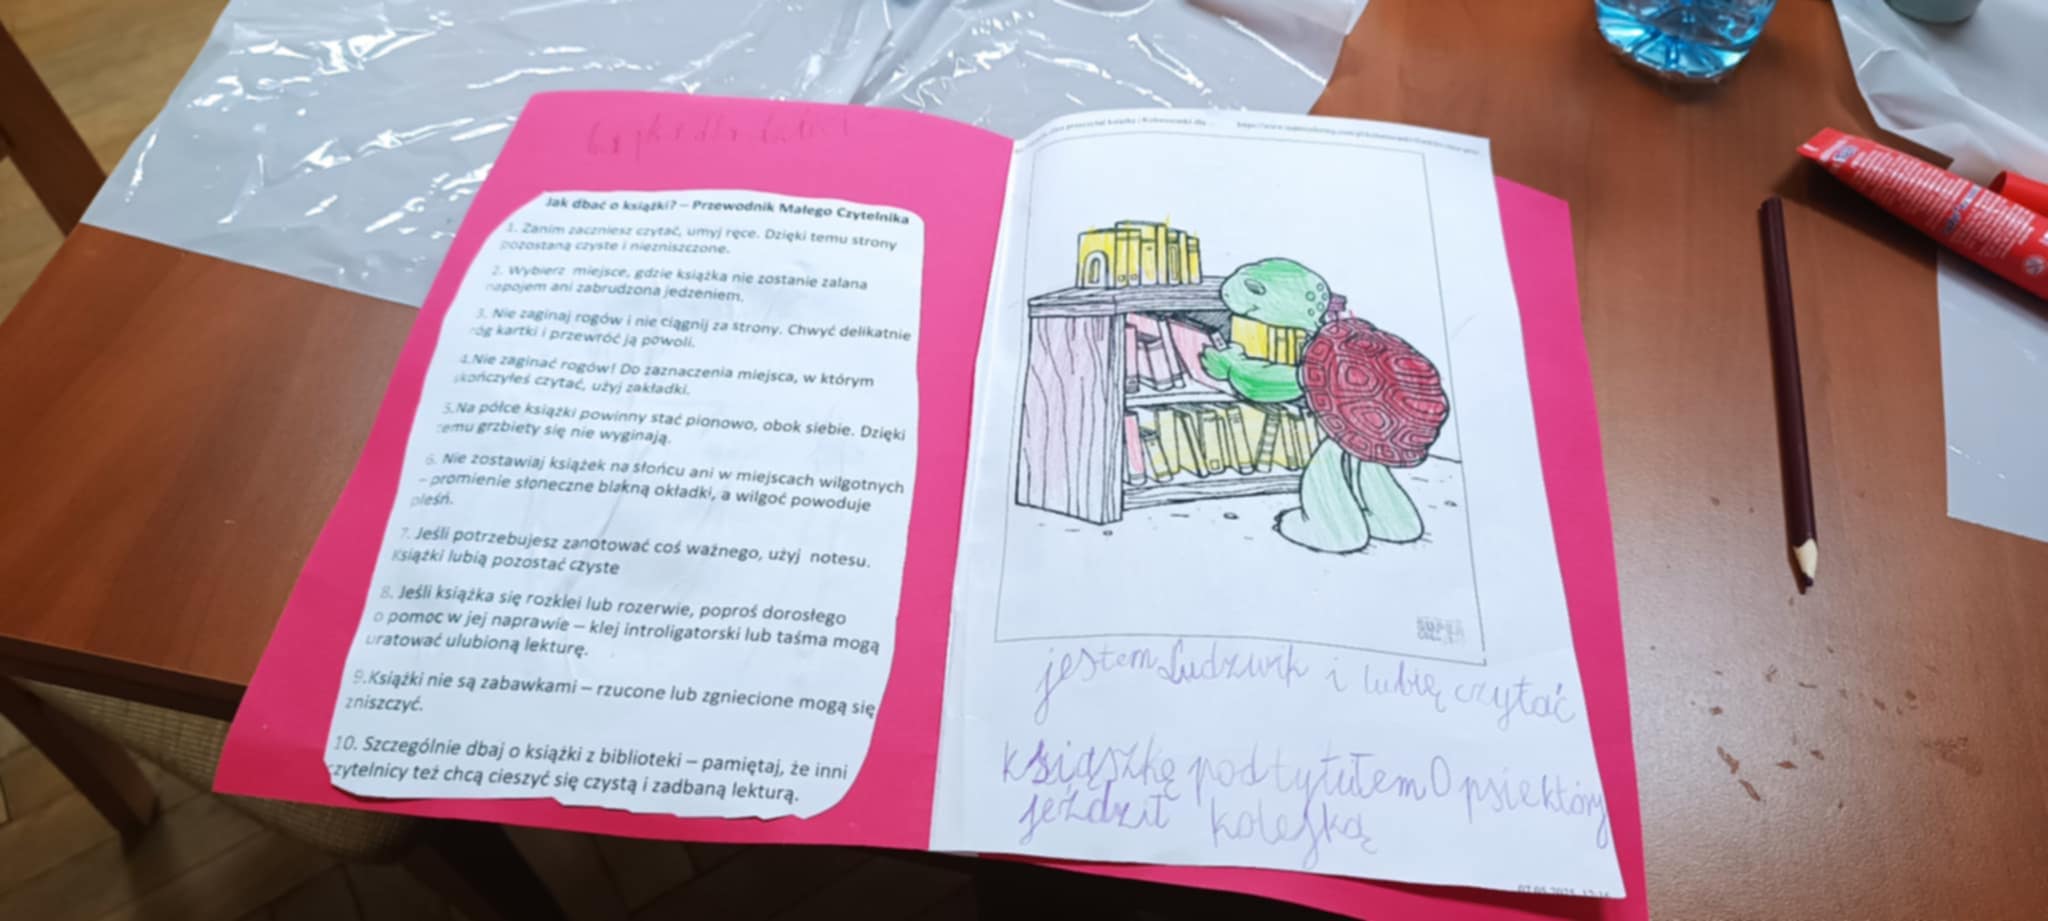 Jak dbać o książki? – Przewodnik Małego Czytelnika
1. Zanim zaczniesz czytać, umyj ręce. Dzięki temu strony
pozostaną czyste i niezniszczone.
2. Wybierz miejsce, gdzie książka nie zostanie zalana
napojem ani zabrudzona jedzeniem.
3. Nie zaginaj rogów i nie ciągnij za strony. Chwyć delikatnie
róg kartki i przewróć ją powoli.
4.Nie zaginać rogów! Do zaznaczenia miejsca, w którym
skończyłeś czytać, użyj zakładki.
5.Na półce książki powinny stać pionowo, obok siebie. Dzięki
temu grzbiety się nie wyginają.
6. Nie zostawiaj książek na słońcu ani w miejscach wilgotnych
– promienie słoneczne blakną okładki, a wilgoć powoduje
pleśń.
7. Jeśli potrzebujesz zanotować coś ważnego, użyj notesu.
Książki lubią pozostać czyste
8. Jeśli książka się rozklei lub rozerwie, poproś dorosłego
o pomoc w jej naprawie – klej introligatorski lub taśma mogą
uratować ulubioną lekturę.
9.Książki nie są zabawkami – rzucone lub zgniecione mogą się
zniszczyć.
10. Szczególnie dbaj o książki z biblioteki – pamiętaj, że inni
czytelnicy też chcą cieszyć się czystą i zadbaną lekturą.
jestem Ludzwik i lubię czytać
ksiąszkę pod tytułem O psie który
jeździł kolejką